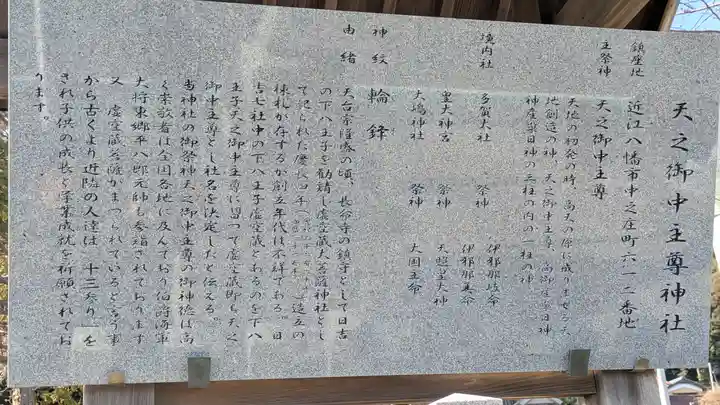 天之御中主尊神社
鎮座地　近江八幡市中之庄町六一二番地
主祭神　天之御中主尊
天地の初発の時、高天の原に成りませる天
地創造の神、天之御中主尊、高御産巣日神
神産巣日神の三柱の内の一柱の神
境内社　多賀大社　祭神　伊邪那岐命
伊邪那美命
皇大神宮　祭神　天照皇大神
大嶋神社　祭神　大国主命
神紋　輪鋒
由緒　天台宗隆盛の頃、長命寺の鎮守として日吉
の下八王子を勧請し虚空蔵大菩薩神社とし
て記られた慶長四年
造立の
棟札が存するが創立年代は不詳である。日
吉七社中の下八王子虚空蔵とあるのを下八
王子天之御中主尊に習って虚空蔵即ち天之
御中主尊として社名を決定したと伝える。
当神社の御祭神天之御中主尊の御神徳は高
く崇敬者は全国各地に及んでおり旧海軍
大将東郷平八郎元帥も参詣されております
又　虚空蔵菩薩がまつられていると言う事
から古くより近隣の人達は　十三参り　を
され子供の成長と学業成就を祈願されてお
ります。